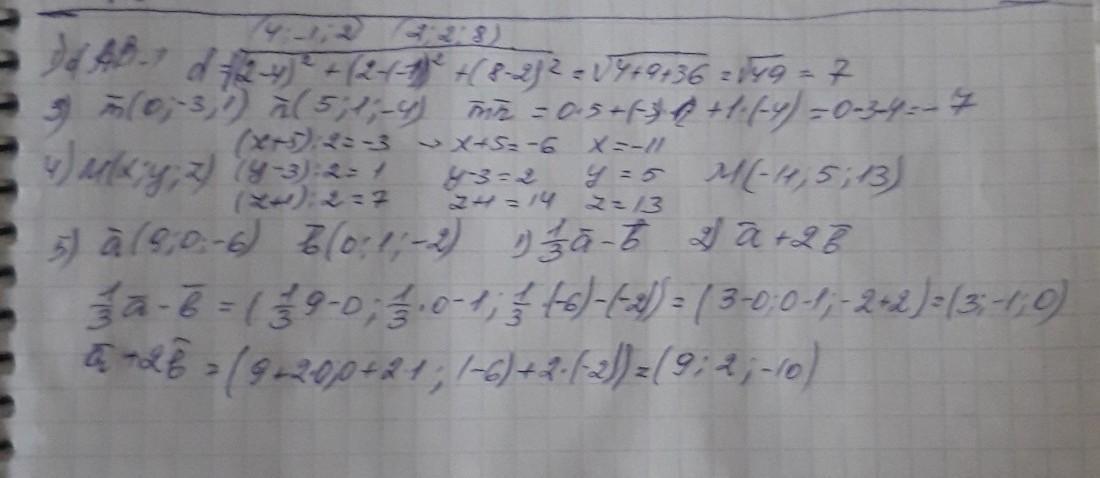 (4;-1;2) (2;2;8)
1) d AB-? d=√(2-4)² + (2-(-1))² + (8-2)² = √4+9+36 = √49 = 7
3) m̄(0;-3;1) n̄(5;1;-4) m̄n̄ = 0·5+(-3)·1+1·(-4)=0-3-4=-7
(x+5):2=-3 → x+5=-6 x=-11
4) M(x;y;z) (y-3):2=1 y-3=2 y=5 M(-11;5;13)
(z+1):2=7 z+1=14 z=13
5) ā(9;0;-6) b̄(0;1;-2) 1) 1/3 ā-b̄ 2) ā+2b̄
1/3 ā-b̄ = (1/3 9-0; 1/3·0-1; 1/3·(-6)-(-2)) = (3-0;0-1;-2+2)=(3;-1;0)
ā+2b̄ = (9+2·0;0+2·1; (-6)+2·(-2))=(9;2;-10)